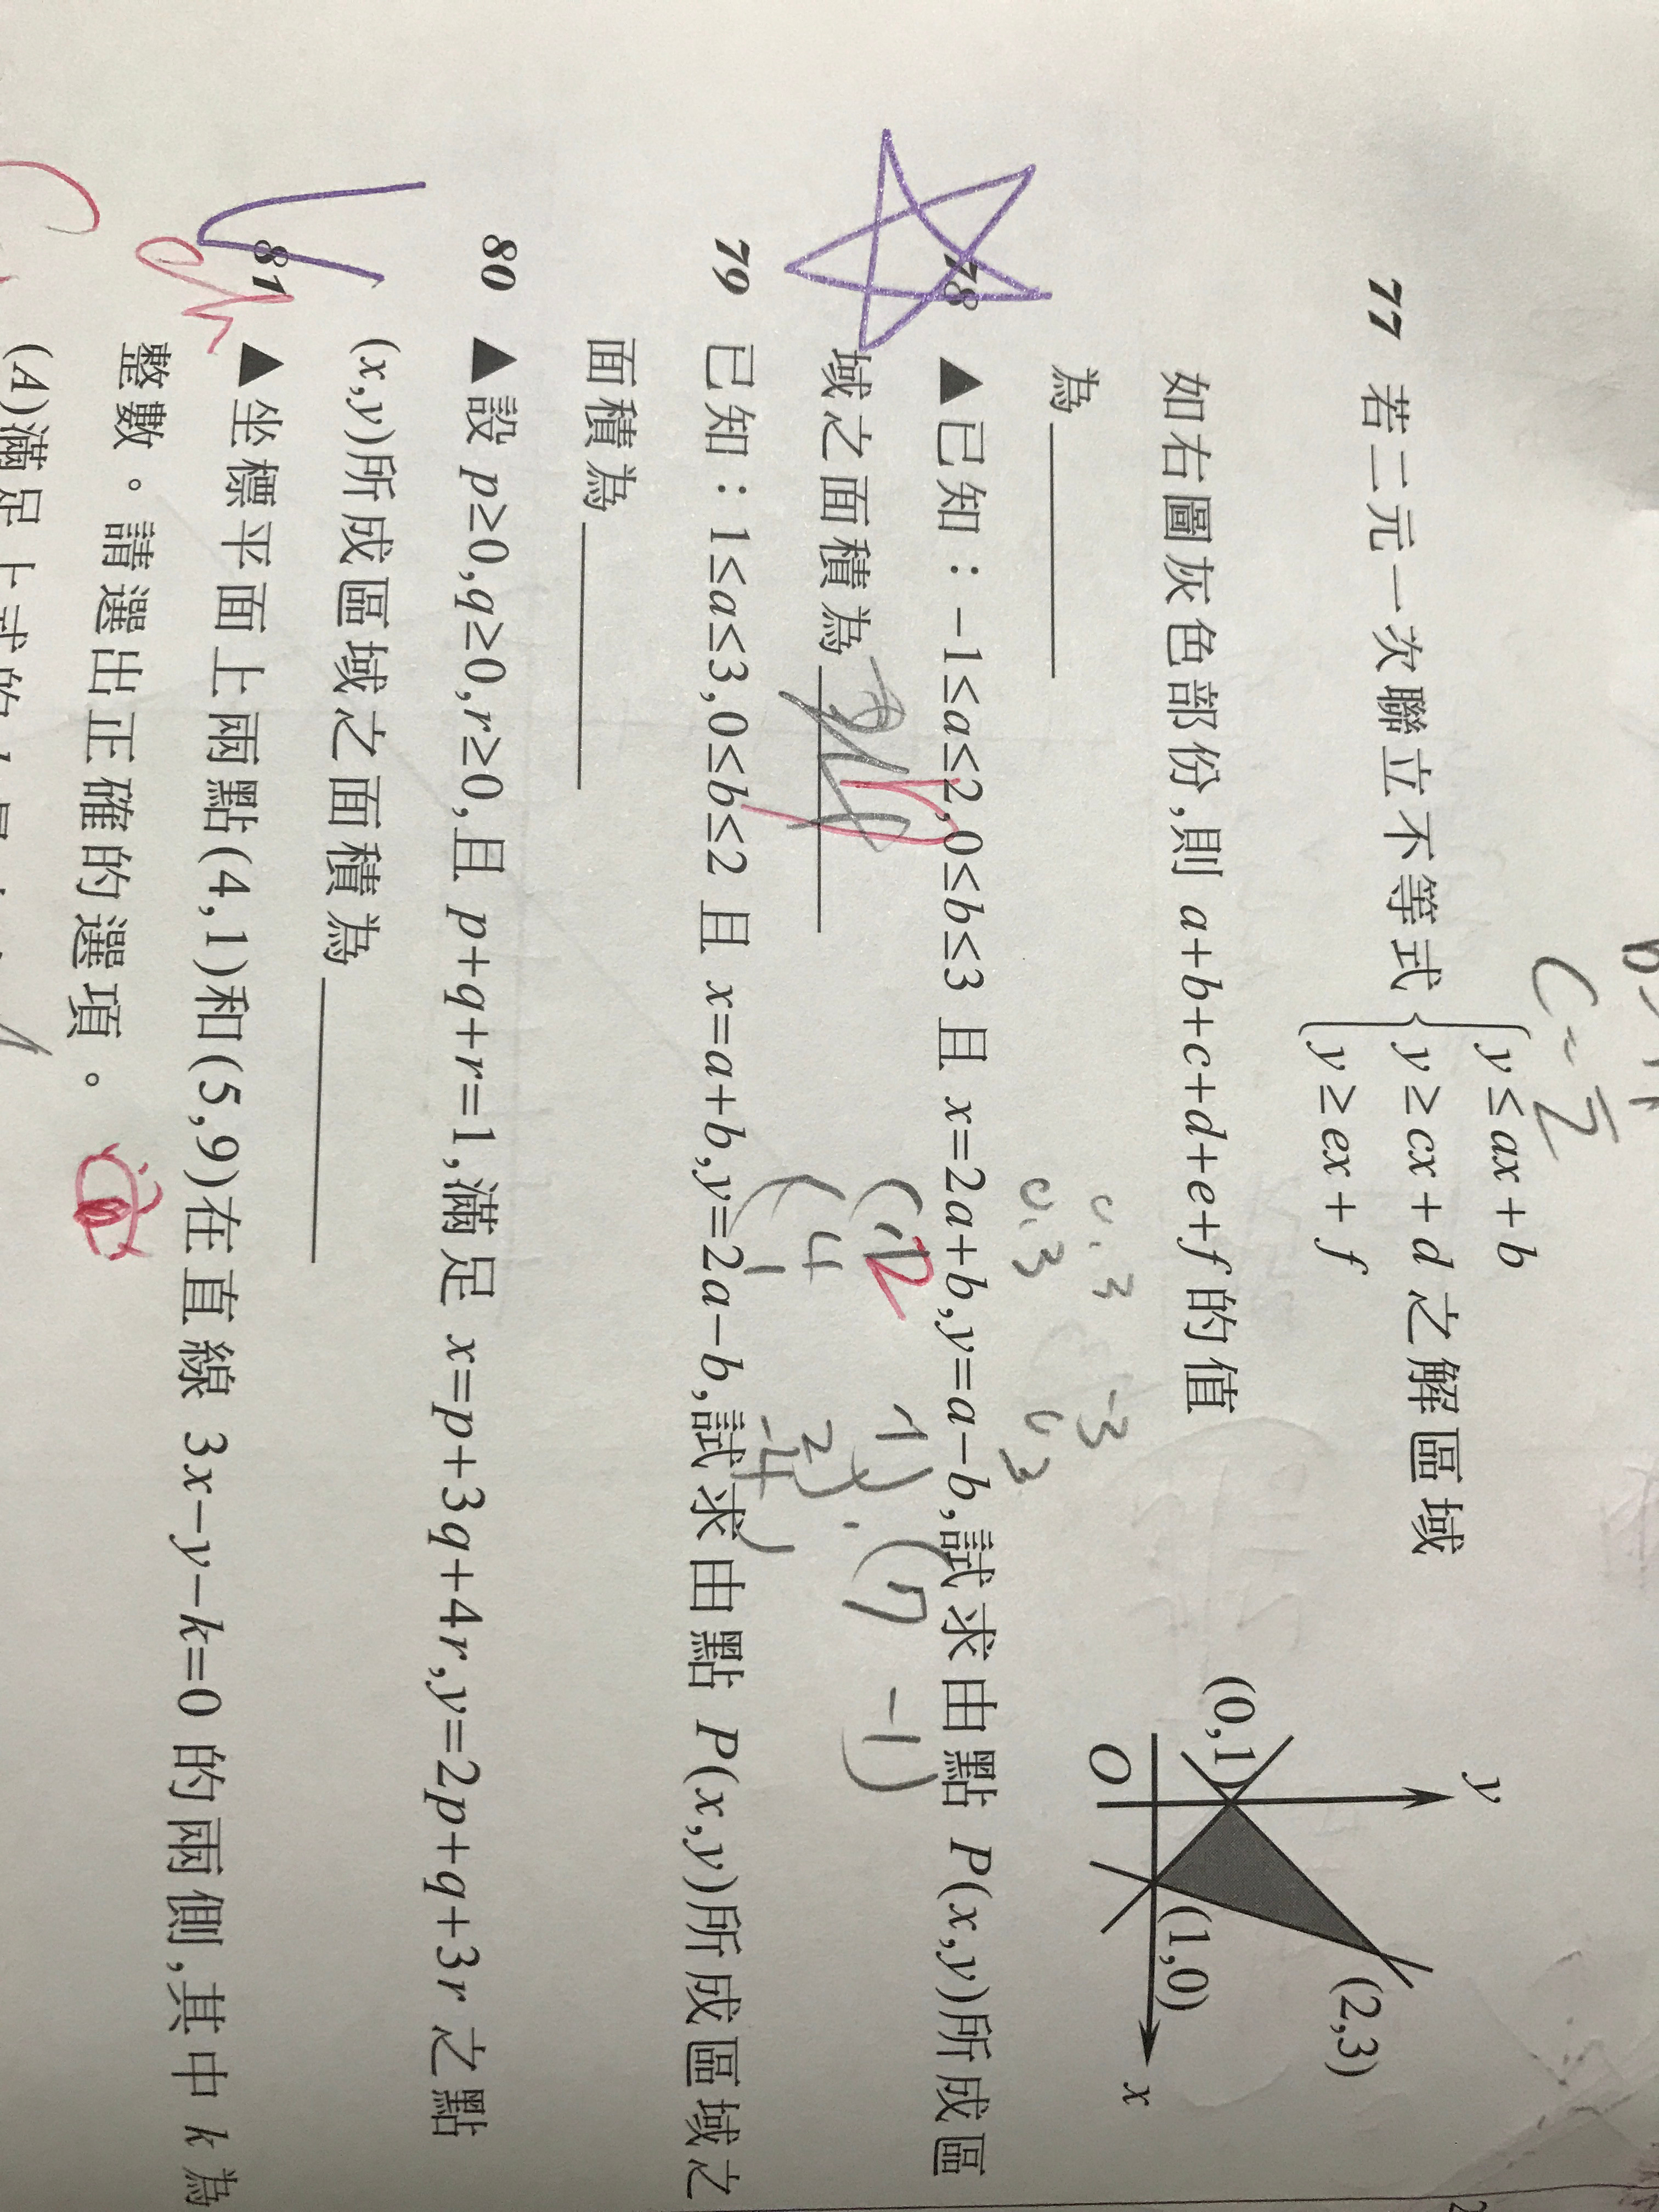 C = 2
77 若二元一次聯立不等式 { y≤ax+b
y≥cx+d 之解區域
y≥ex+f
如右圖灰色部份,則 a+b+c+d+e+f 的值
為
y
(2,3)
(0,1)
(1,0)
O
x
78 ▲已知:-1≤a≤2,0≤b≤3 且 x=2a+b,y=a-b,試求由點 P(x,y)所成區
域之面積為
(7 -1)
79 已知:1≤a≤3,0≤b≤2 且 x=a+b,y=2a-b,試求由點 P(x,y)所成區域之
面積為
80 ▲設 p≥0,q≥0,r≥0,且 p+q+r=1,滿足 x=p+3q+4r,y=2p+q+3r 之點
(x,y)所成區域之面積為
81 ▲坐標平面上兩點(4,1)和(5,9)在直線 3x-y-k=0 的兩側,其中 k 為
整數。請選出正確的選項。
(A)滿足上式的